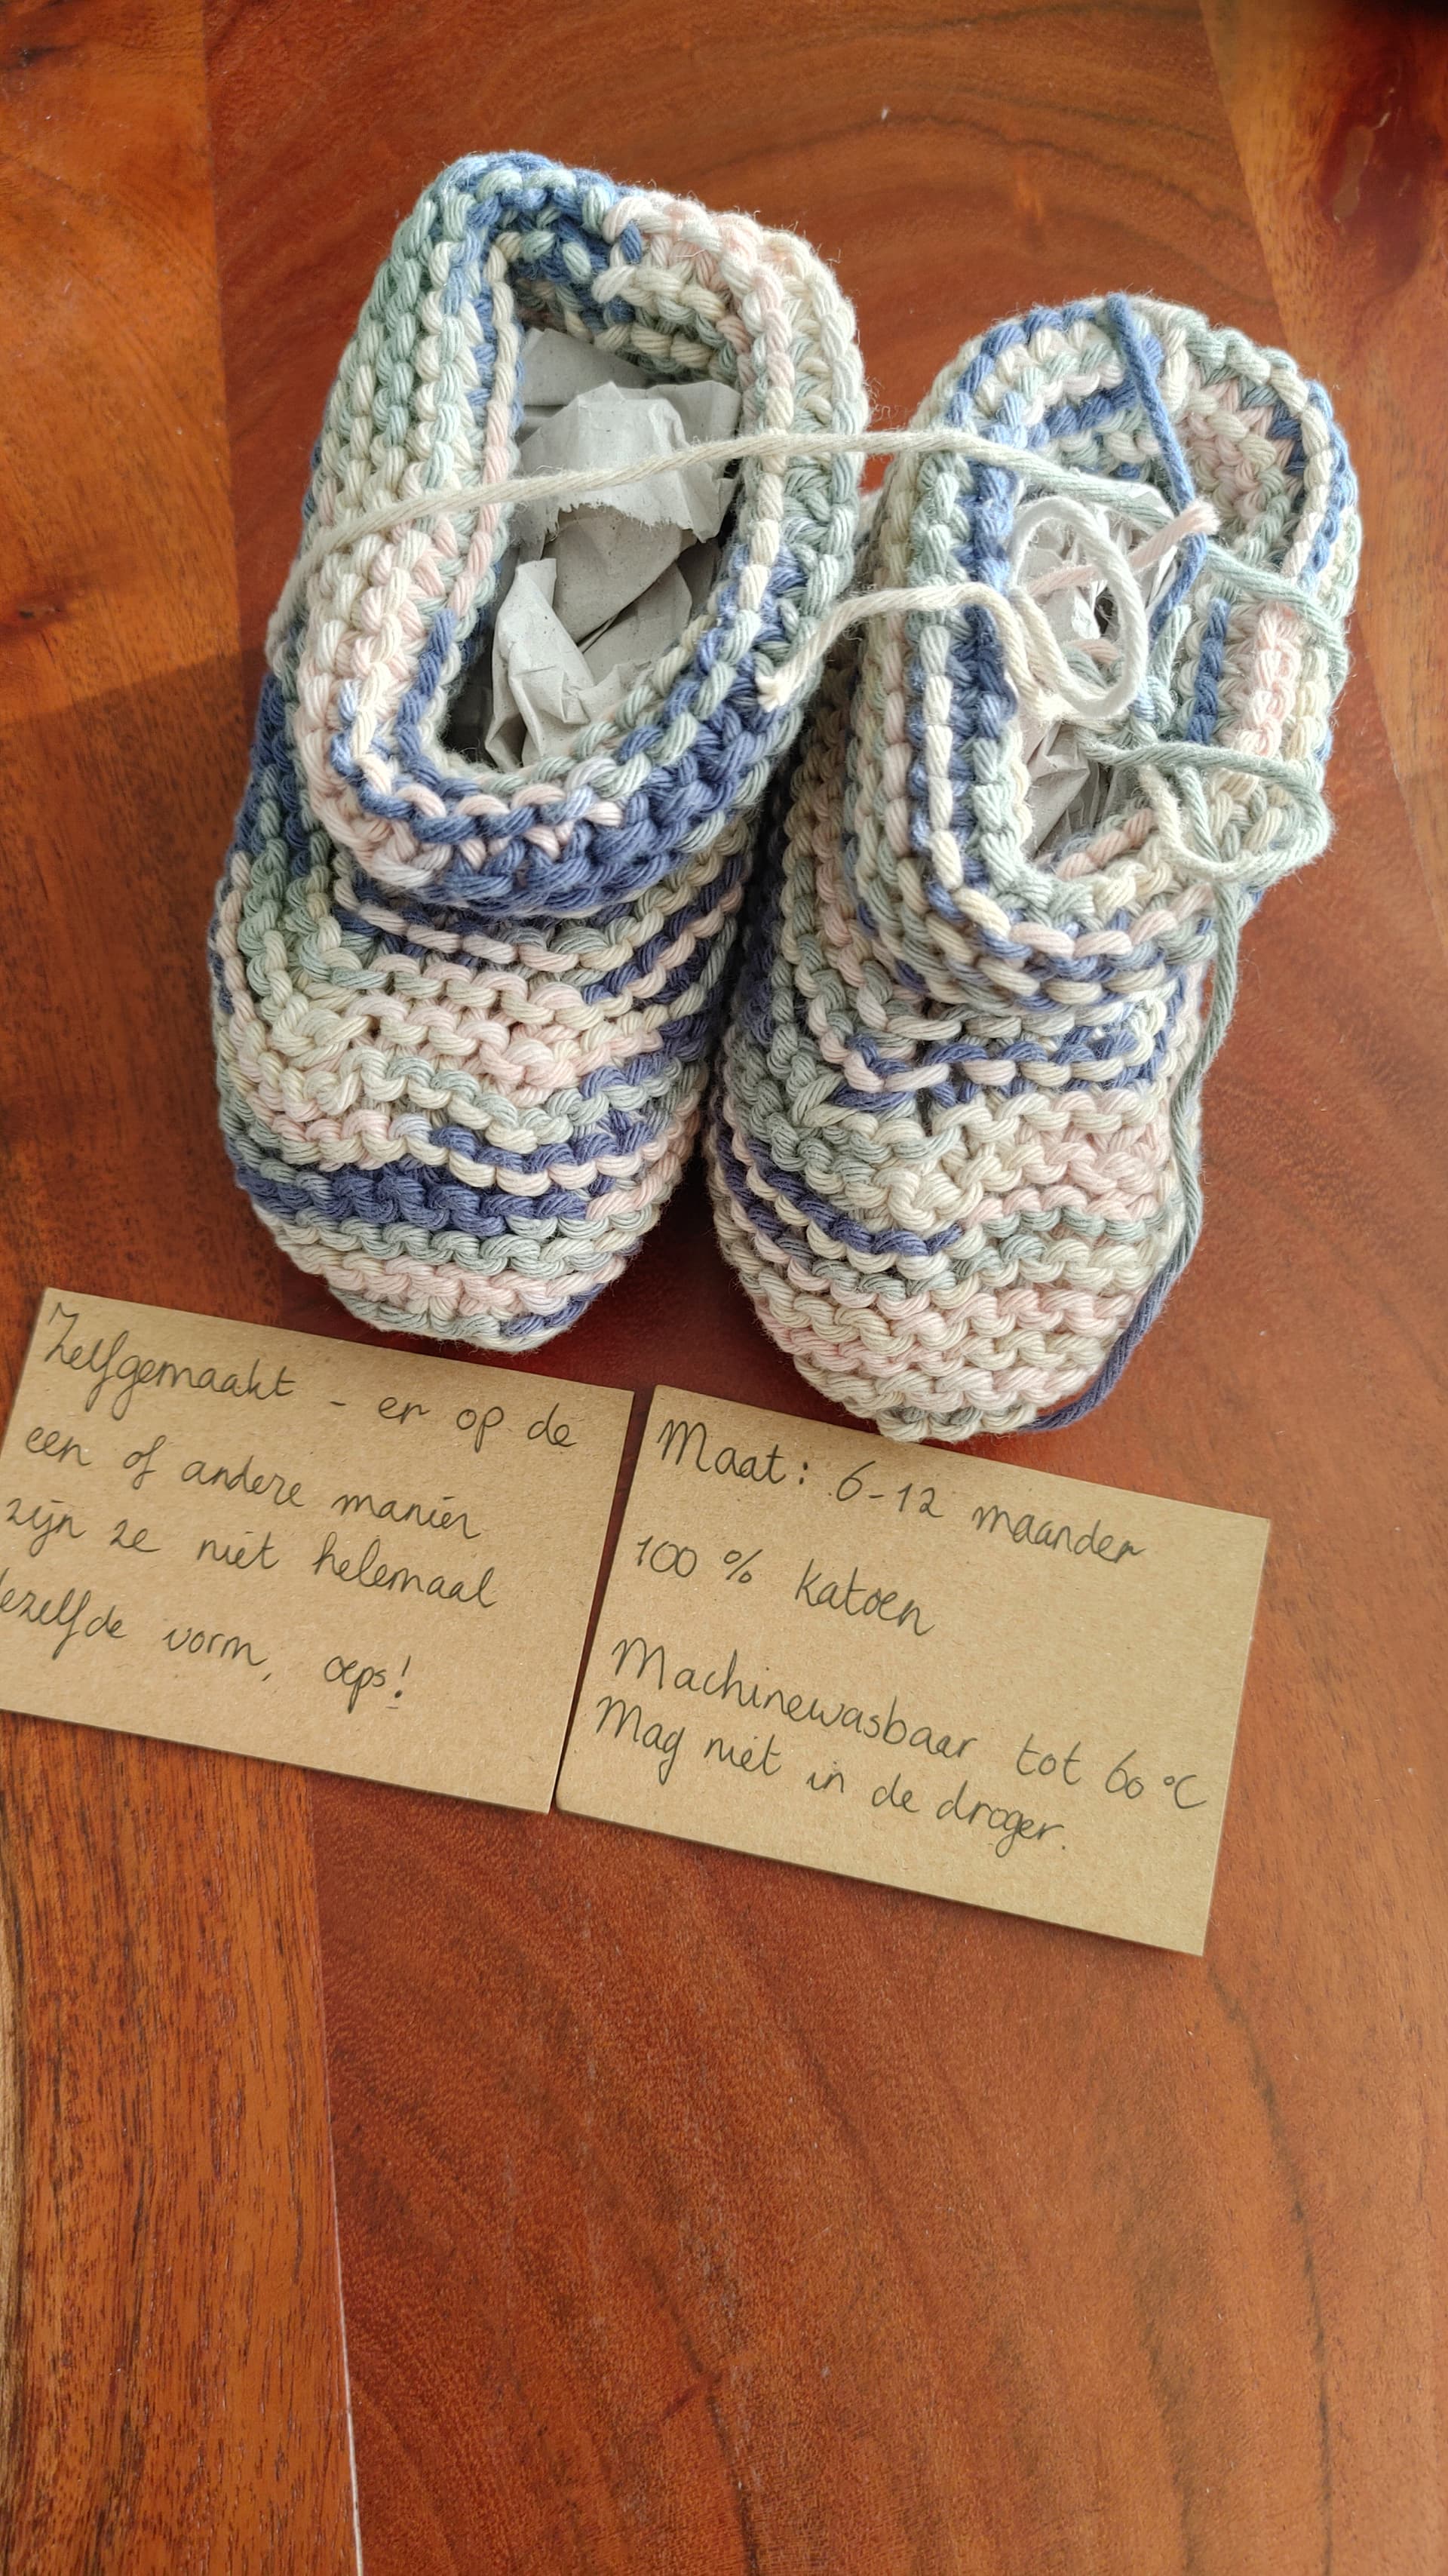 Zelfgemaakt - en op de
een of andere manier
zijn ze niet helemaal
dezelfde vorm, oeps!
Maat: 6-12 maanden
100 % katoen
Machinewasbaar tot 60 °C
Mag niet in de droger.